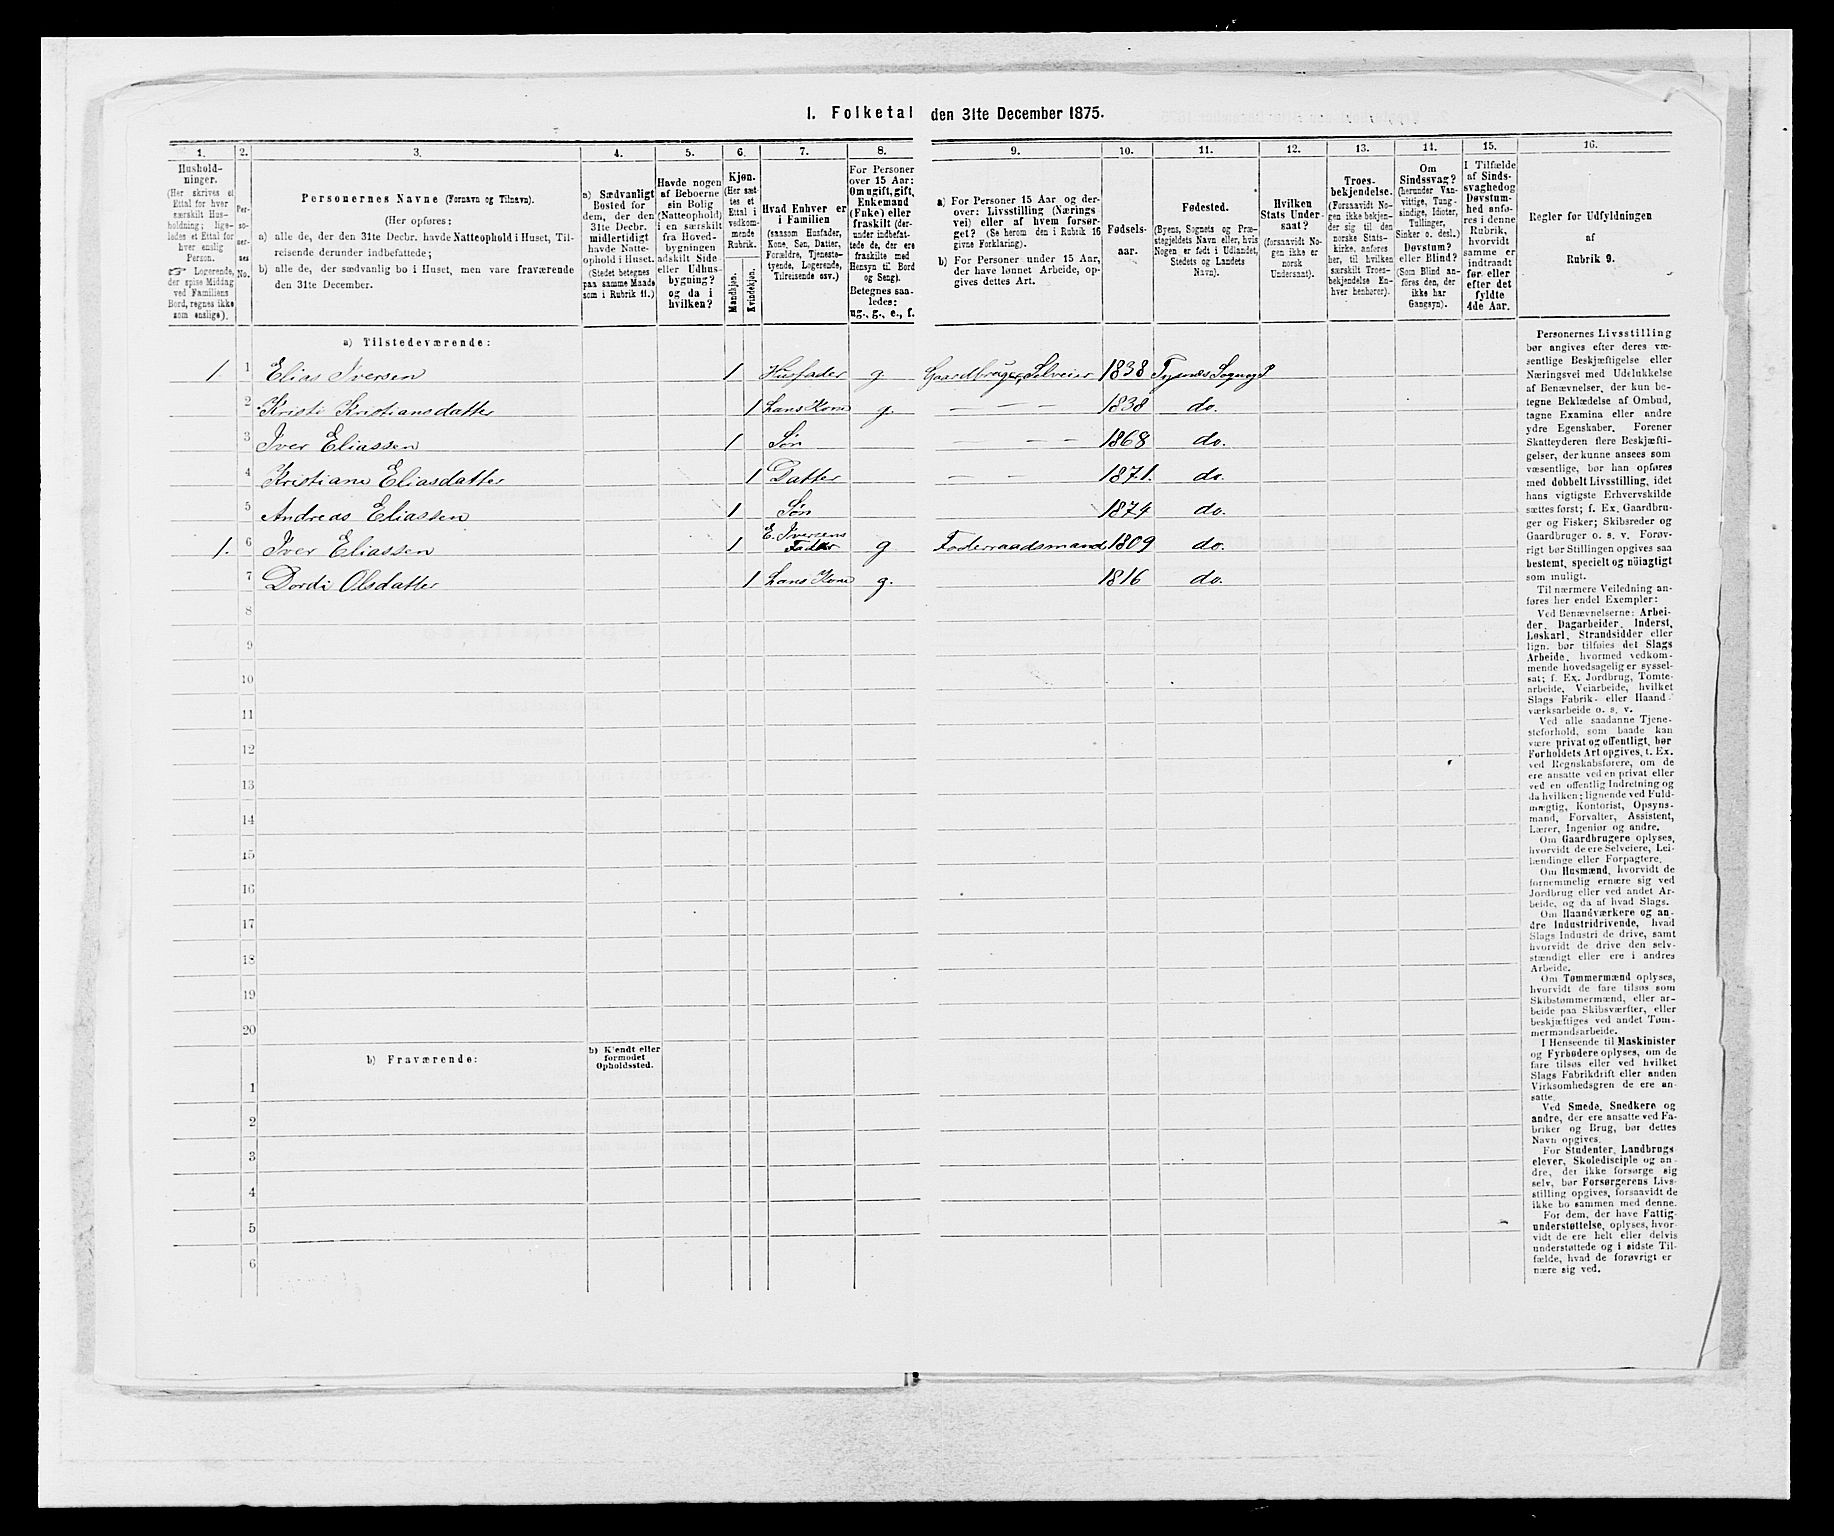 I. Folketal den 31te December 1875.
1. 2. 3. 4. 5. 6. 7. 8. 9. 10. 11. 12. 13. 14. 15. 16.
Hushold-
ninger.
(Her skrives et
Ettal for hver
særskilt Hus-
holdning; lige-
ledes et Ettal for
hver enslig
Person.
☞ Logerende,
der spise Middag
ved Familiens
Bord, regnes ikke
som enslige).
Per-
so-
ner-
nes
No.
Personernes Navne (Fornavn og Tilnavn).
(Her opføres:
a) alle de, der den 31te Decbr. havde Natteophold i Huset, Til-
reisende derunder indbefattede;
b) alle de, der sædvanlig bo i Huset, men vare fraværende
den 31te December.
a) Sædvanligt
Bosted for
dem, der den
31te Decbr.
midlertidigt
havde Natte-
ophold i Huset.
(Stedet betegnes
paa samme Maade
som i Rubrik 11.)
Havde nogen
af Beboerne
sin Bolig
(Natteophold)
i en særskilt
fra Hoved-
bygningen
adskilt Side-
eller Udhus-
bygning?
og da i
hvilken?
Kjøn.
(Her sæt-
tes et
Ettal i
vedkom-
mende
Rubrik.
Mandkjøn.
Kvindekjøn.
Hvad Enhver er
i Familien
(saasom Husfader,
Kone, Søn, Datter,
Forældre, Tjeneste-
tyende, Logerende,
Tilreisende osv.)
For Personer
over 15 Aar:
Om ugift, gift,
Enkemand
(Enke) eller
fraskilt (der-
under indbefat-
tede de, der ere
fraskilte med
Hensyn til Bord
og Seng).
Betegnes saa-
ledes:
ug., g., e., f.
a) For Personer 15 Aar og der-
over: Livsstilling (Nærings
vei) eller af hvem forsør-
get? (Se herom den i Rubrik 16
givne Forklaring).
b) For Personer under 15 Aar,
der have lønnet Arbeide, op-
gives dettes Art.
Fødsels-
aar.
Fødested.
(Byens, Sognets og Præ-
stegjeldets Navn eller, hvis
Nogen er født i Udlandet,
Stedets og Landets
Navn).
Hvilken
Stats Under-
saat?
(forsaavidt No-
gen ikke er
norsk
Undersaat).
Troes-
bekjendelse.
(Forsaavidt No-
gen ikke bekjen-
der sig til den
norske Stats-
kirke, anføres
her, til hvilken
særskilt Troes-
bekjendelse En-
hver henhører).
Om
Sindssvag?
(herunder Van-
vittige, Tung-
sindige, Idioter,
Tullinger,
Sinker o. desl.)
Døvstum?
eller Blind?
(Som Blind an-
føres den, der
ikke har
Gangsyn).
I Tilfælde
af Sinds-
svaghed og
Døvstum-
hed anfø-
res i denne
Rubrik,
hvorvidt
samme er
indtraadt
før eller
efter det
fyldte
4de Aar.
Regler for Udfyldningen
af
Rubrik 9.
a) Tilstedeværende:
1. 1 Elias Iversen 1 Husfader g. Gaardbruger, Selveier 1838 Tysnæs Sogn og P
2 Kristi Kristiansdatter 1 Hans Kone g. — — 1838 do.
3 Iver Eliassen 1 Søn — — — 1868 do.
4 Kristiane Eliasdatter 1 Datter — — 1871. do.
5 Andreas Eliassen 1 Søn 1874 do.
1. 6 Iver Eliassen 1 E. Iversens Fader g Foderraadsmand 1809 do.
7 Dordi Olsdatter 1 Hans Kone g. 1816 do.
8
9
10
11
12
13
14
15
16
17
18
19
20
b) Fraværende:
b) Kjendt eller
formodet
Opholdssted.
1
2
3
4
5
6
Personernes Livsstilling
bør angives efter deres væ-
sentlige Beskjæftigelse eller
Næringsvei med Udelukkelse
af Benævnelser, der kun be-
tegne Beklædelse af Ombud,
tagne Examina eller andre
ydre Egenskaber. Forener
Skatteyderen flere Beskjæfti-
gelser, der kunne ansees som
væsentlige, bør han opføres
med dobbelt Livsstilling, idet
hans vigtigste Erhvervskilde
sættes først; f. Ex. Gaardbru-
ger og Fisker; Skibsreder og
Gaardbruger o. s. v. Forøv-
rigt bør Stillingen opgives saa
bestemt, specielt og nöiagtigt
som muligt.
Til nærmere Veiledning an-
føres her endel Exempler:
Ved Benævnelserne: Arbei-
der, Dagarbeider, Inderst,
Løskarl, Strandsidder eller
lign. bør tilføies det Slags
Arbeide, hvormed vedkom-
mende hovedsagelig er syssel-
sat; f. Ex. Jordbrug, Tomte-
arbeide, Veiarbeide, hvilket
Slags Fabrik- eller Haand-
værksarbeide o. s. v.
Ved alle saadanne Tjene-
steforhold, som baade kan
være privat og offentligt, bør
Forholdets Art opgives, t. Ex.
ved Regnskabsførere, om de
ere ansatte ved en privat eller
ved en offentlig Indretning og
da hvilken; lignende ved Fuld-
mægtig, Kontorist, Opsyns-
mand, Forvalter, Assistent,
Lærer, Ingeniør og andre.
Om Gaardbrugere oplyses,
hvorvidt de ere Selveiere, Lei-
lændinge eller Forpagtere.
Om Husmænd, hvorvidt de
fornemmelig ernære sig ved
Jordbrug eller ved andet Ar-
beide, og da af hvad Slags.
Om Haandværkere og an-
dre Industridrivende, hvad
Slags Industri de drive, samt
hvorvidt de drive den selv-
stændigt eller ere i andres
Arbeide.
Om Tømmermænd oplyses,
hvorvidt de fare tilsøs som
Skibstømmermænd, eller ar-
beide paa Skibsværfter, eller
beskjæftiges ved andet Tøm-
mermandsarbeide.
I Henseende til Maskinister
og Fyrbødere oplyses, om de
fare tilsøs eller ved hvilket
Slags Fabrikdrift eller anden
Virksomhedsgren de ere an-
satte.
Ved Smede, Snedkere og
andre, der ere ansatte ved Fa-
briker og Brug, bør dettes
Navn opgives.
For Studenter, Landbrugs
elever, Skoledisciple og an-
dre, der ikke forsørge sig
selv, bør Forsørgerens Livs-
stilling opgives, forsaavidt de
ikke bo sammen med denne.
For dem, der have Fattig-
understøttelse, oplyses, hvor-
vidt de ere helt eller delvis
understøttede og i sidste Til-
fælde, hvad de forøvrigt er
nære sig ved.